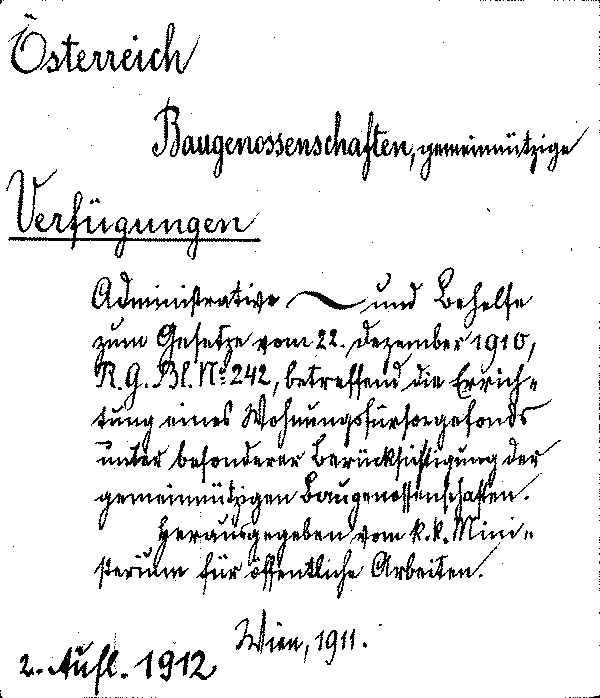 Österreich
Baugenossenschaften, gemeinnützige
Verfügungen
Administrative ~ und Behelfe
zum Gesetze vom 22. Dezember 1910,
R. G. Bl. No 242, betreffend die Errich-
tung eines Wohnungsfürsorgefonds
unter besonderer Berücksichtigung der
gemeinnützigen Baugenossenschaften.
Herausgegeben vom k. k. Mini-
sterium für öffentliche Arbeiten.
Wien, 1911.
2. Aufl. 1912